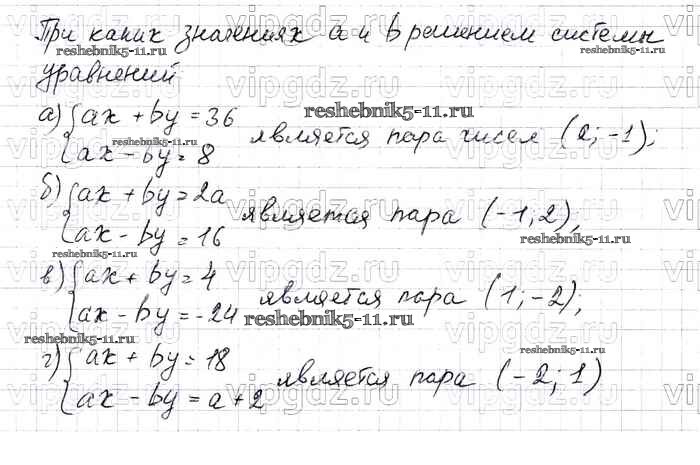 При каких значениях a и b решением системы
уравнений
а) { ax + by = 36
{ ax - by = 8 является пара чисел (2; -1);
б) { ax + by = 2a
{ ax - by = 16 является пара (-1; 2);
в) { ax + by = 4
{ ax - by = -24 является пара (1; -2);
г) { ax + by = 18
{ ax - by = a + 2 является пара (-2; 1)
reshebnik5-11.ru
reshebnik5-11.ru
reshebnik5-11.ru
reshebnik5-11.ru
reshebnik5-11.ru
reshebnik5-11.ru
reshebnik5-11.ru
reshebnik5-11.ru
reshebnik5-11.ru
vipgdz.ru